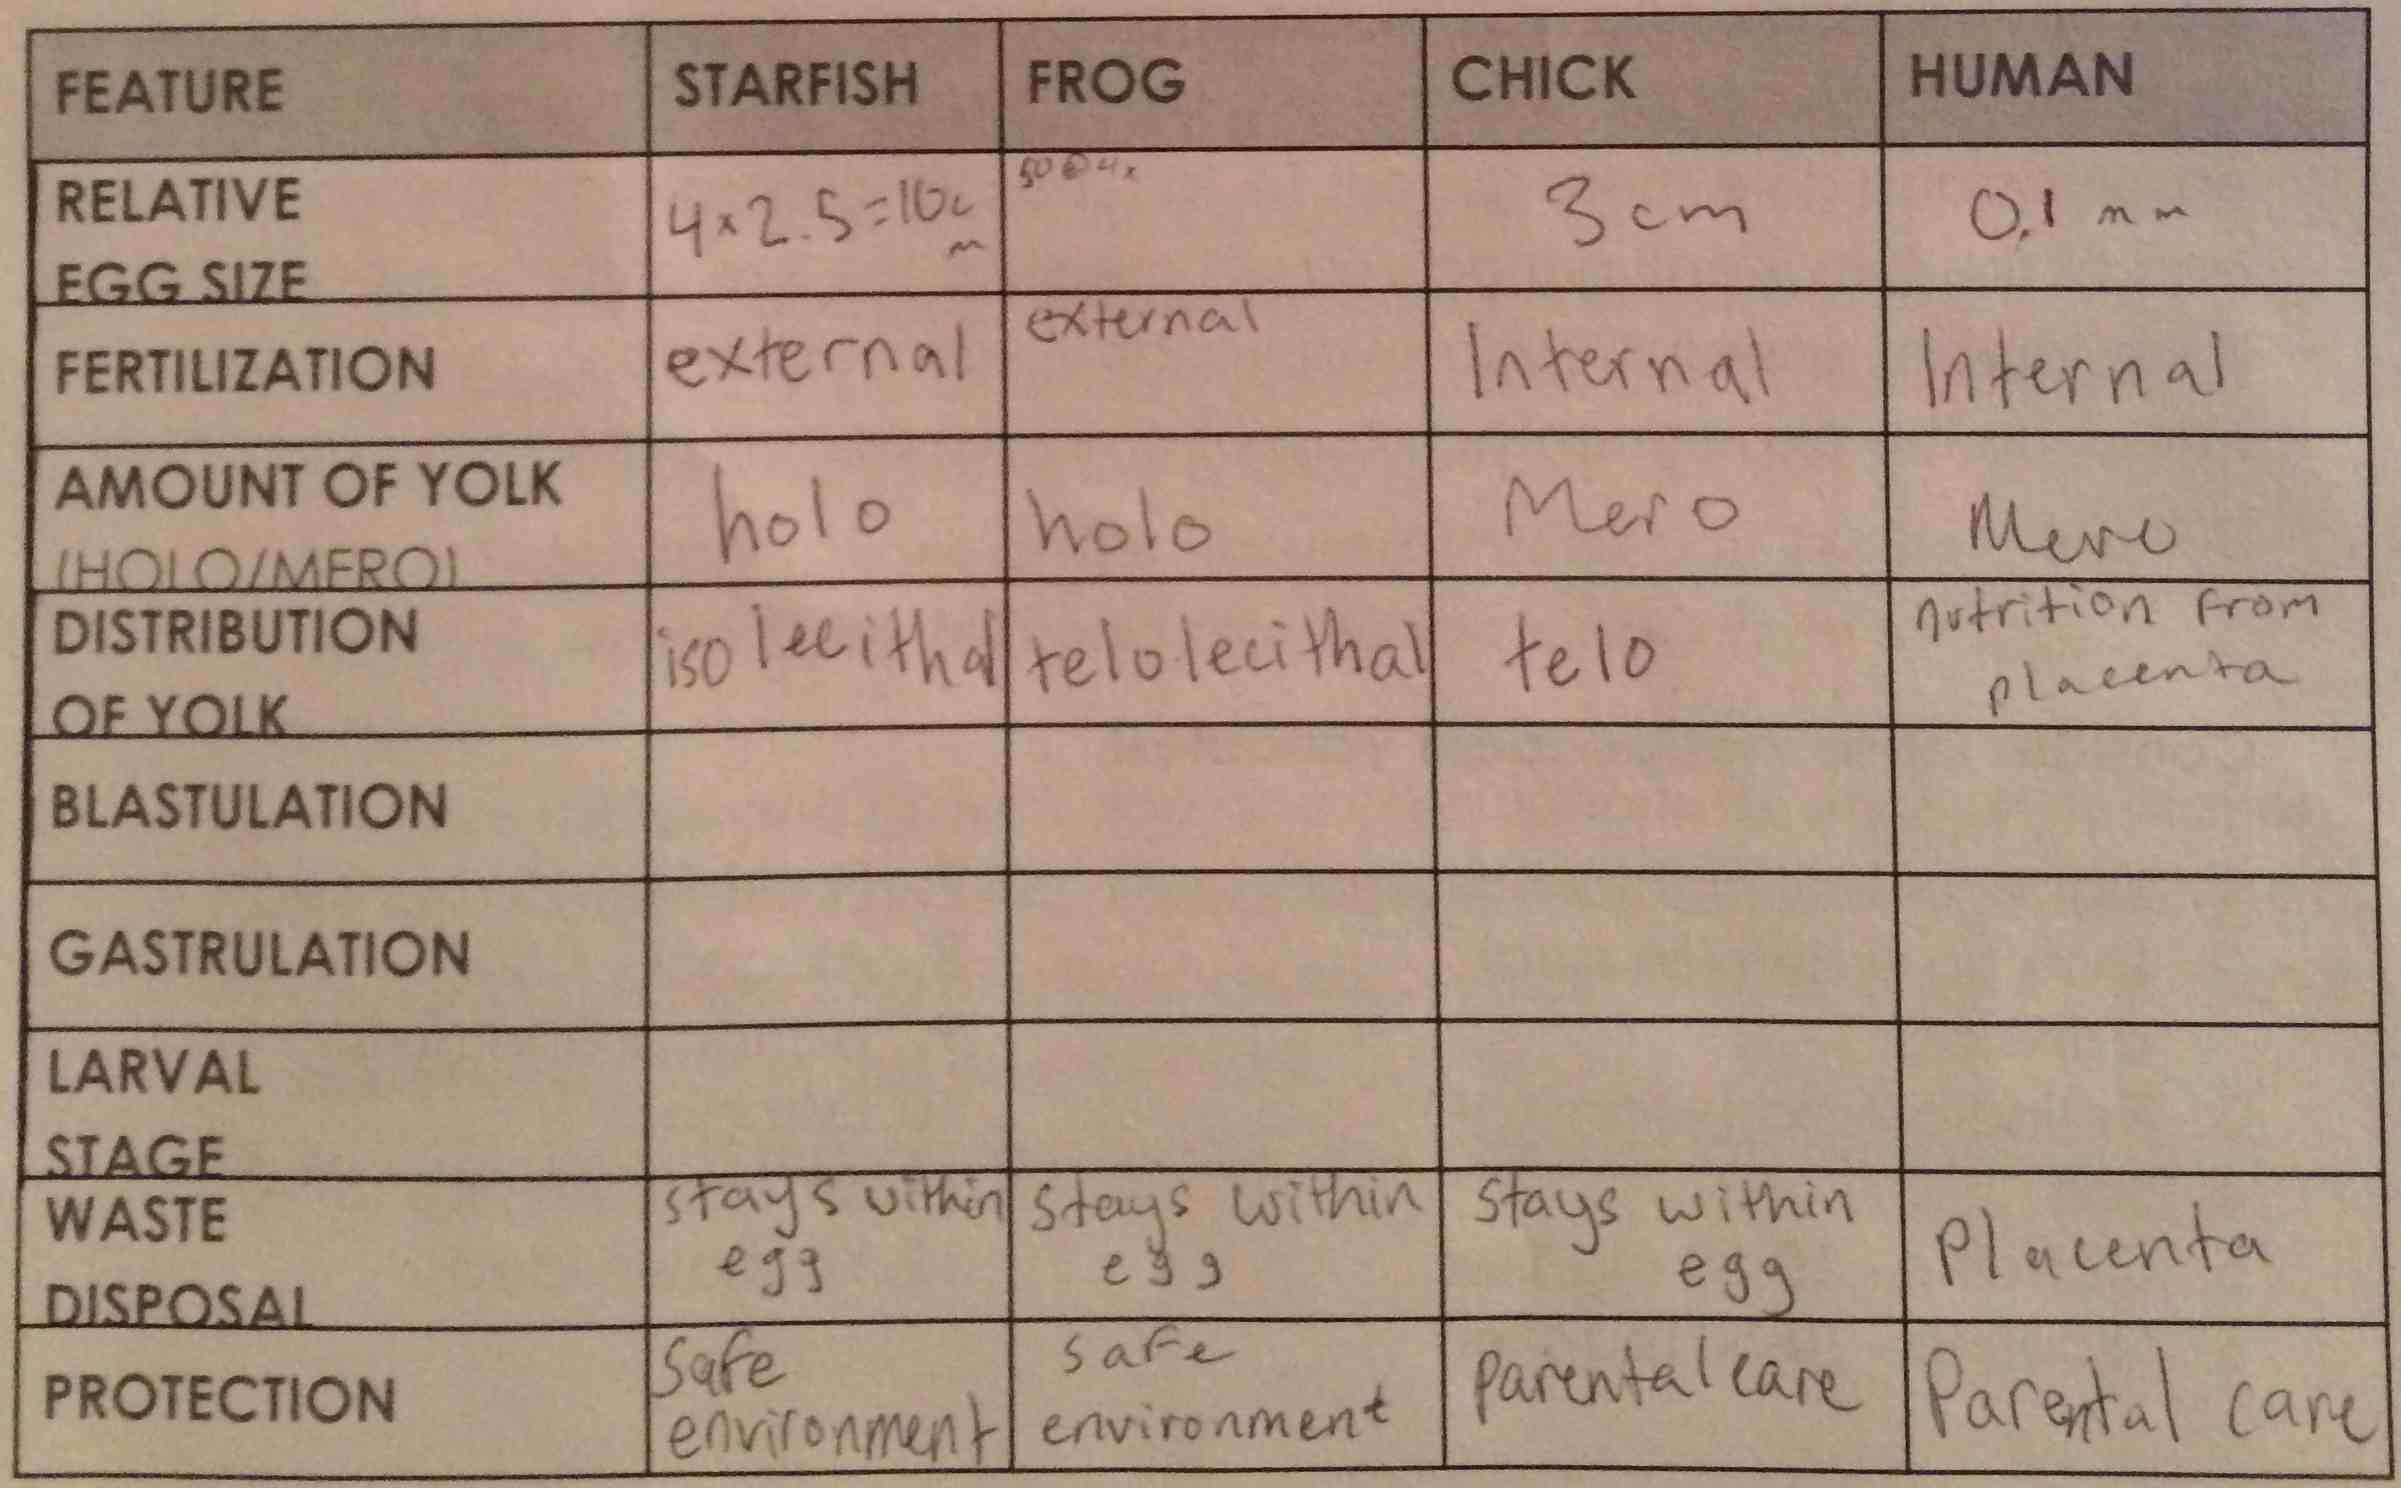 FEATURE STARFISH FROG CHICK HUMAN
RELATIVE
EGG SIZE
4x2.5=10c
m
50@4x
3 cm
0.1 mm
FERTILIZATION
external
external
Internal
Internal
AMOUNT OF YOLK
(HOLO/MERO)
holo
holo
Mero
Mero
DISTRIBUTION
OF YOLK
isolecithal
telolecithal
telo
nutrition from
placenta
BLASTULATION
GASTRULATION
LARVAL
STAGE
WASTE
DISPOSAL
stays within
egg
stays within
egg
stays within
egg
Placenta
PROTECTION
Safe
environment
safe
environment
parental care
Parental care